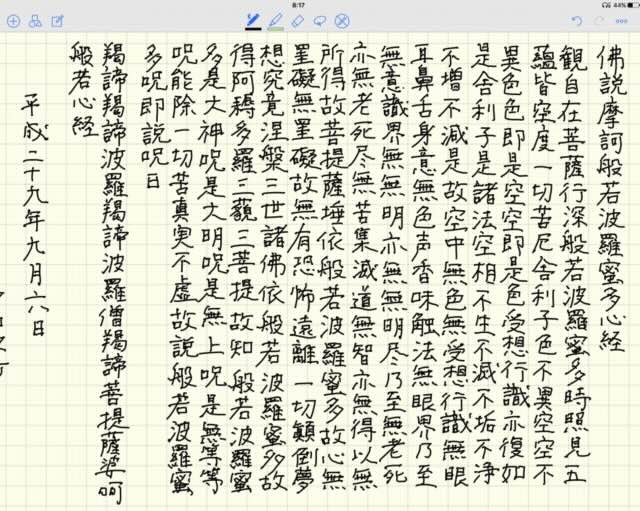 8:17
44%
佛説摩訶般若波羅蜜多心経
観自在菩薩行深般若波羅蜜多時照見五
蘊皆空度一切苦厄舎利子色不異空空不
異色色即是空空即是色受想行識亦復如
是舎利子是諸法空相不生不滅不垢不浄
不増不減是故空中無色無受想行識無眼
耳鼻舌身意無色声香味触法無眼界乃至
無意識界無無明亦無無明尽乃至無老死
亦無老死尽無苦集滅道無智亦無得以無
所得故菩提薩埵依般若波羅蜜多故心無
罣礙無罣礙故無有恐怖遠離一切顛倒夢
想究竟涅槃三世諸佛依般若波羅蜜多故
得阿耨多羅三藐三菩提故知般若波羅蜜
多是大神呪是大明呪是無上呪是無等等
呪能除一切苦真実不虚故説般若波羅蜜
多呪即説呪曰
羯諦羯諦波羅羯諦波羅僧羯諦菩提薩婆呵
般若心経
平成二十九年九月六日